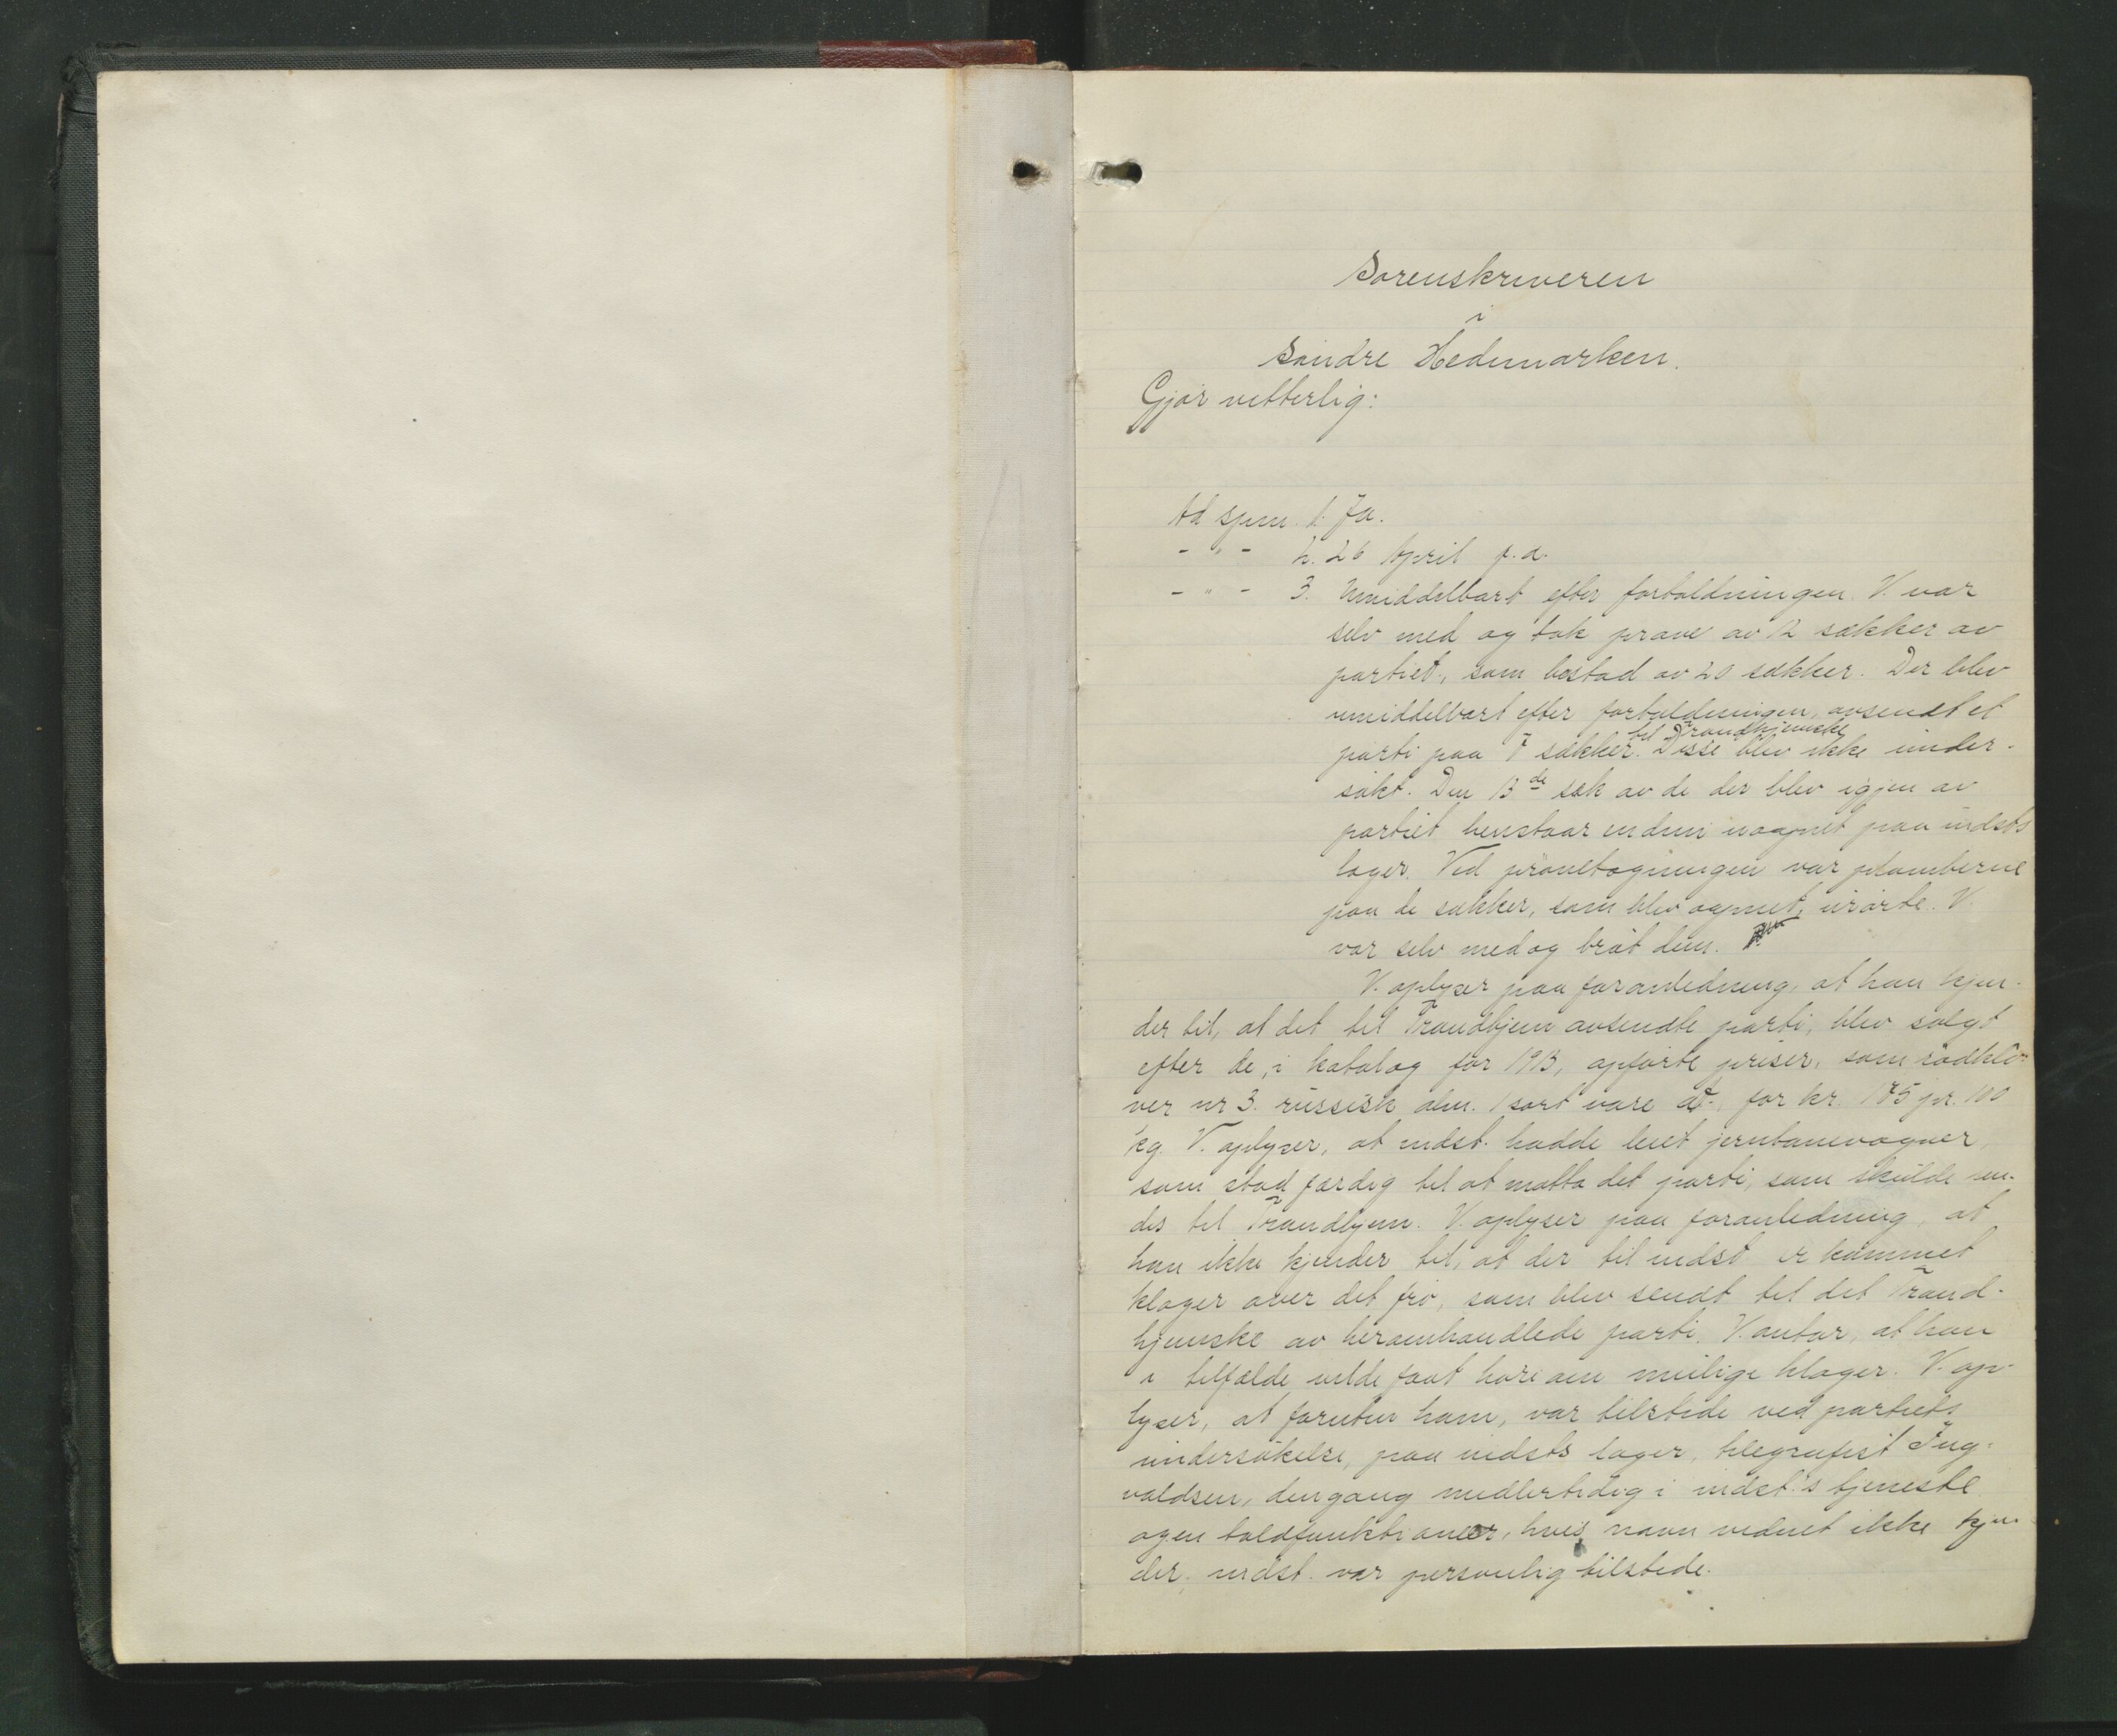 Sorenskriveren
i
Söndre Hedemarken.
Gjör vitterlig:
Ad spm. 1. Ja.
- " - 2. 26 April f.a.
- " - 3. Umiddelbart efter fortoldningen. V. var
selv med og tok pröve av 12 sækker av
partiet, som bestod av 20 sækker. Der blev
umiddelbart efter fortoldningen, avsendt et
parti paa 7 sækker til Trondhjemske. Disse blev ikke under-
sökt. Den 13de sæk av de der blev igjen av
partiet henstaar endnu uaapnet paa indsts
lager. Ved prövetagningen var plomberne
paa de sækker, som blev aapnet, urörte. V.
var selv med og bröt dem.
V. oplyser paa foranledning, at han kjen-
der til, at det til Trondhjem avsendte parti, blev solgt
efter de, i katalog for 1913, opförte priser, som rödklö-
ver nr 3. russisk alm. 1 sort vare for kr. 175 pr. 100
kg. V. oplyser, at indst. hadde leiet jernbanevogner,
som stod færdig til at motta det parti, som skulde sen-
des til Trondhjem. V. oplyser paa foranledning, at
han ikke kjender til, at der til indst er kommet
klager over det frö, som blev sendt til det Trond-
hjemske av heromhandlede parti. V. antar, at han
i tilfælde vilde faat höre om mulige klager. V. op-
lyser, at foruten ham, var tilstede ved partiets
undersökelse, paa indsts lager, telegrafist Ing-
valdsen, dengang midlertidig i indst.'s tjeneste
og en toldfunktionær, hvis navn vidnet ikke kjen-
der. indst. var personlig tilstede.